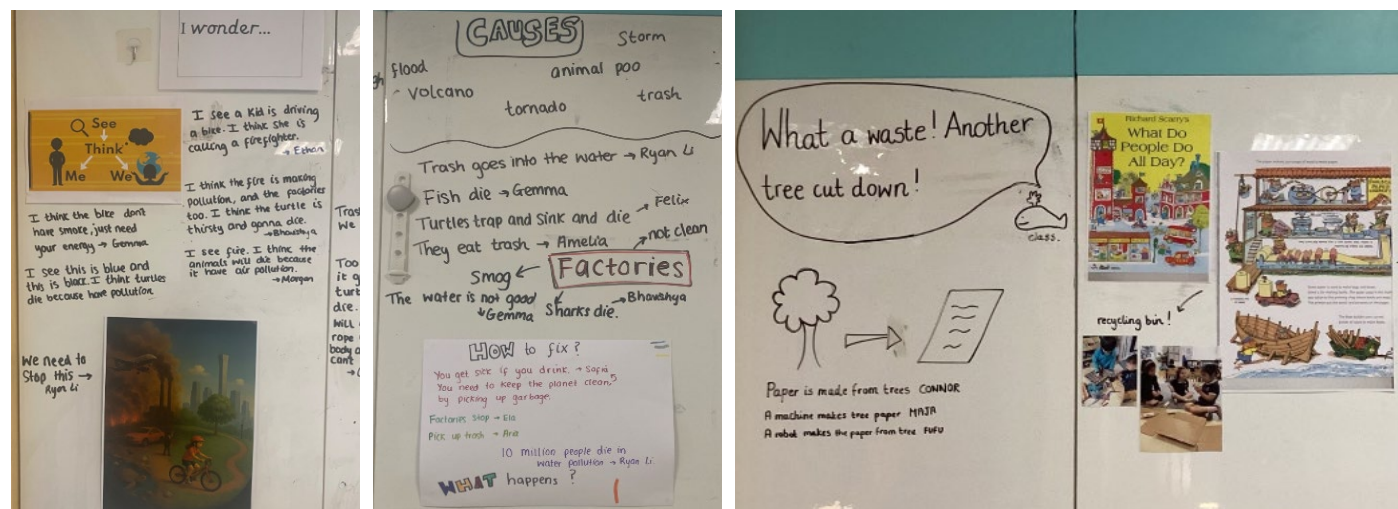 I wonder...
See
Think
Me We
I see a Kid is driving
a bike. I think she is
calling a firefighter.
→ Ethan
I think the fire is making
pollution, and the factories
too. I think the turtle is
thirsty and gonna die.
→ Bhavshya
I see fire. I think the
animals will die because
it have air pollution.
→ Morgan
I think the bike don't
have smoke, just need
your energy → Gemma
I see this is blue and
this is black. I think turtles
die because have pollution
We need to
Stop this →
Ryan Li
Tras
We
Too
it g
turt
die.
Will
rope
body a
Can't
CAUSES
Storm
flood
animal poo
- volcano
trash
tornado
Trash goes into the water → Ryan Li
Fish die → Gemma
Turtles trap and sink and die → Felix
They eat trash → Amelia
not clean
Smog ← Factories
The water is not good
Gemma
Sharks die. → Bhavshya
HOW to fix?
You get sick if you drink. → Sofia
You need to keep the planet clean,
by picking up garbage.
Factories stop → Ela
Pick up trash → Aria
10 million people die in
water pollution → Ryan Li.
WHAT happens?
What a waste! Another
tree cut down!
class.
Paper is made from trees CONNOR
A machine makes tree paper MAJA
A robot makes the paper from tree FUFU
Richard Scarry's
What Do
People Do
All Day?
recycling bin!